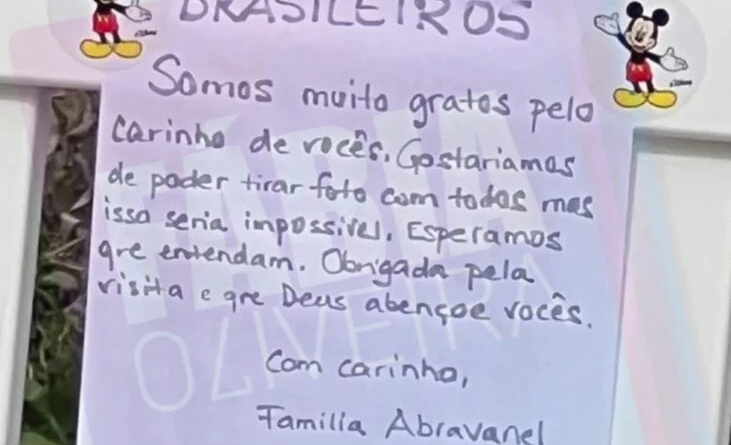 BRASILEIROS
Somos muito gratos pelo
carinho de vocês. Gostariamos
de poder tirar foto com todos mas
isso seria impossivel. Esperamos
que entendam. Obrigada pela
visita e que Deus abençoe vocês.
Com carinho,
Familia Abravanel
FÁBIA
OLIVEIRA